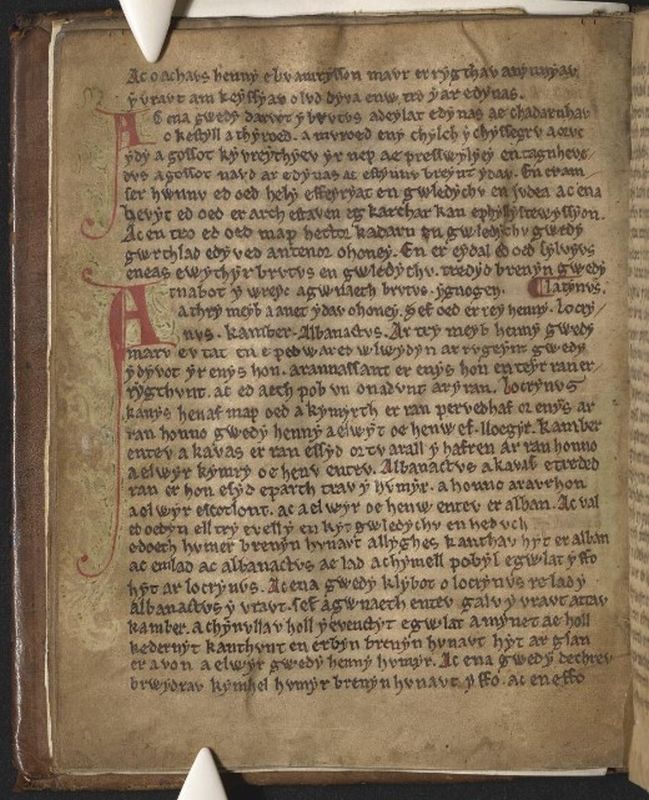 Ac o achavs henny e bv amrysson mavr er rygthav a nynnyav
y vravt am keyssyav o lvd dyva enw tro y ar edynas.
Ac ena gwedy darvot y brvtvs adeylat edynas ae chadarnhav
o kestyll a thyroed. a mvroed eny chylch y chyssegrv a orvc
ydy a gossot kyvreythyev yr nep ae presswylyey en tagnheve/
dvs a gossot navd ar edynas ac estynnv breynt ydav. En er am/
ser hwnnv ed oed hely effeyryat en gwledychv en jvdea ac ena
hevyt ed oed er arch estaven eg karchar kan e phylystewyssyon.
Ac en tro ed oed map hector kadarn en gwledychv gwedy
gwrthlad edyved antenor ohoney. En er eydal ed oed sylvyvs
eneas ewythyr brvtvs en gwledychv. tredyd brenyn gwedy
latynvs.
Ac atnabot y wreyc a gwnaeth brvtvs. ygnogen.
a thry meyb a anet ydav ohoney. Sef oed er rey henny. locry/
nvs. kamber. Albanactvs. Ar try meyb henny gwedy
marv ev tat en e pedwared wlwydyn ar rvgeynt gwedy
y dyvot yr enys hon. a rannassant er enys hon en teyr ran er/
rygthvnt. ac ed aeth pob vn onadvnt ar y ran. locrynvs
kanys henaf map oed a kymyrth er ran pervedhaf or enys ar
ran honno gwedy henny a elwyt oe henw ef. lloegyr. Kamber
entev a kavas er ran essyd or tv arall y hafren ar ran honno
a elwyr kymry oe henv entev. Albanactvs a kavas e treded
ran er hon esyd eparth trav y hvmyr. a honno ar avr hon
a elwyr escotlont. ac a elwyr oe henw entev er alban. Ac val
ed oedyn ell try evelly en kyt gwledychv en hedvch
edoeth hvmer brenyn hvnavt a llyghes kanthav hyt er alban
ac enlad ac albanactvs ae lad a chymell pobyl e gwlat y ffo
hyt ar locrynvs. Ac ena gwedy klybot o locrynvs re lad y
albanactvs y vravt. sef a gwnaeth entev galv y vravt attav
kamber. a chynvllav holl yevenctyt e gwlat a mynet ae holl
kedernyt kanthvnt en erbyn brenyn hvnavt hyt ar glan
er avon a elwyr gwedy henny hvmyr. Ac ena gwedy dechrev
brwydrav kymhel hvmyr brenyn hvnavt y ffo. ac en e ffo